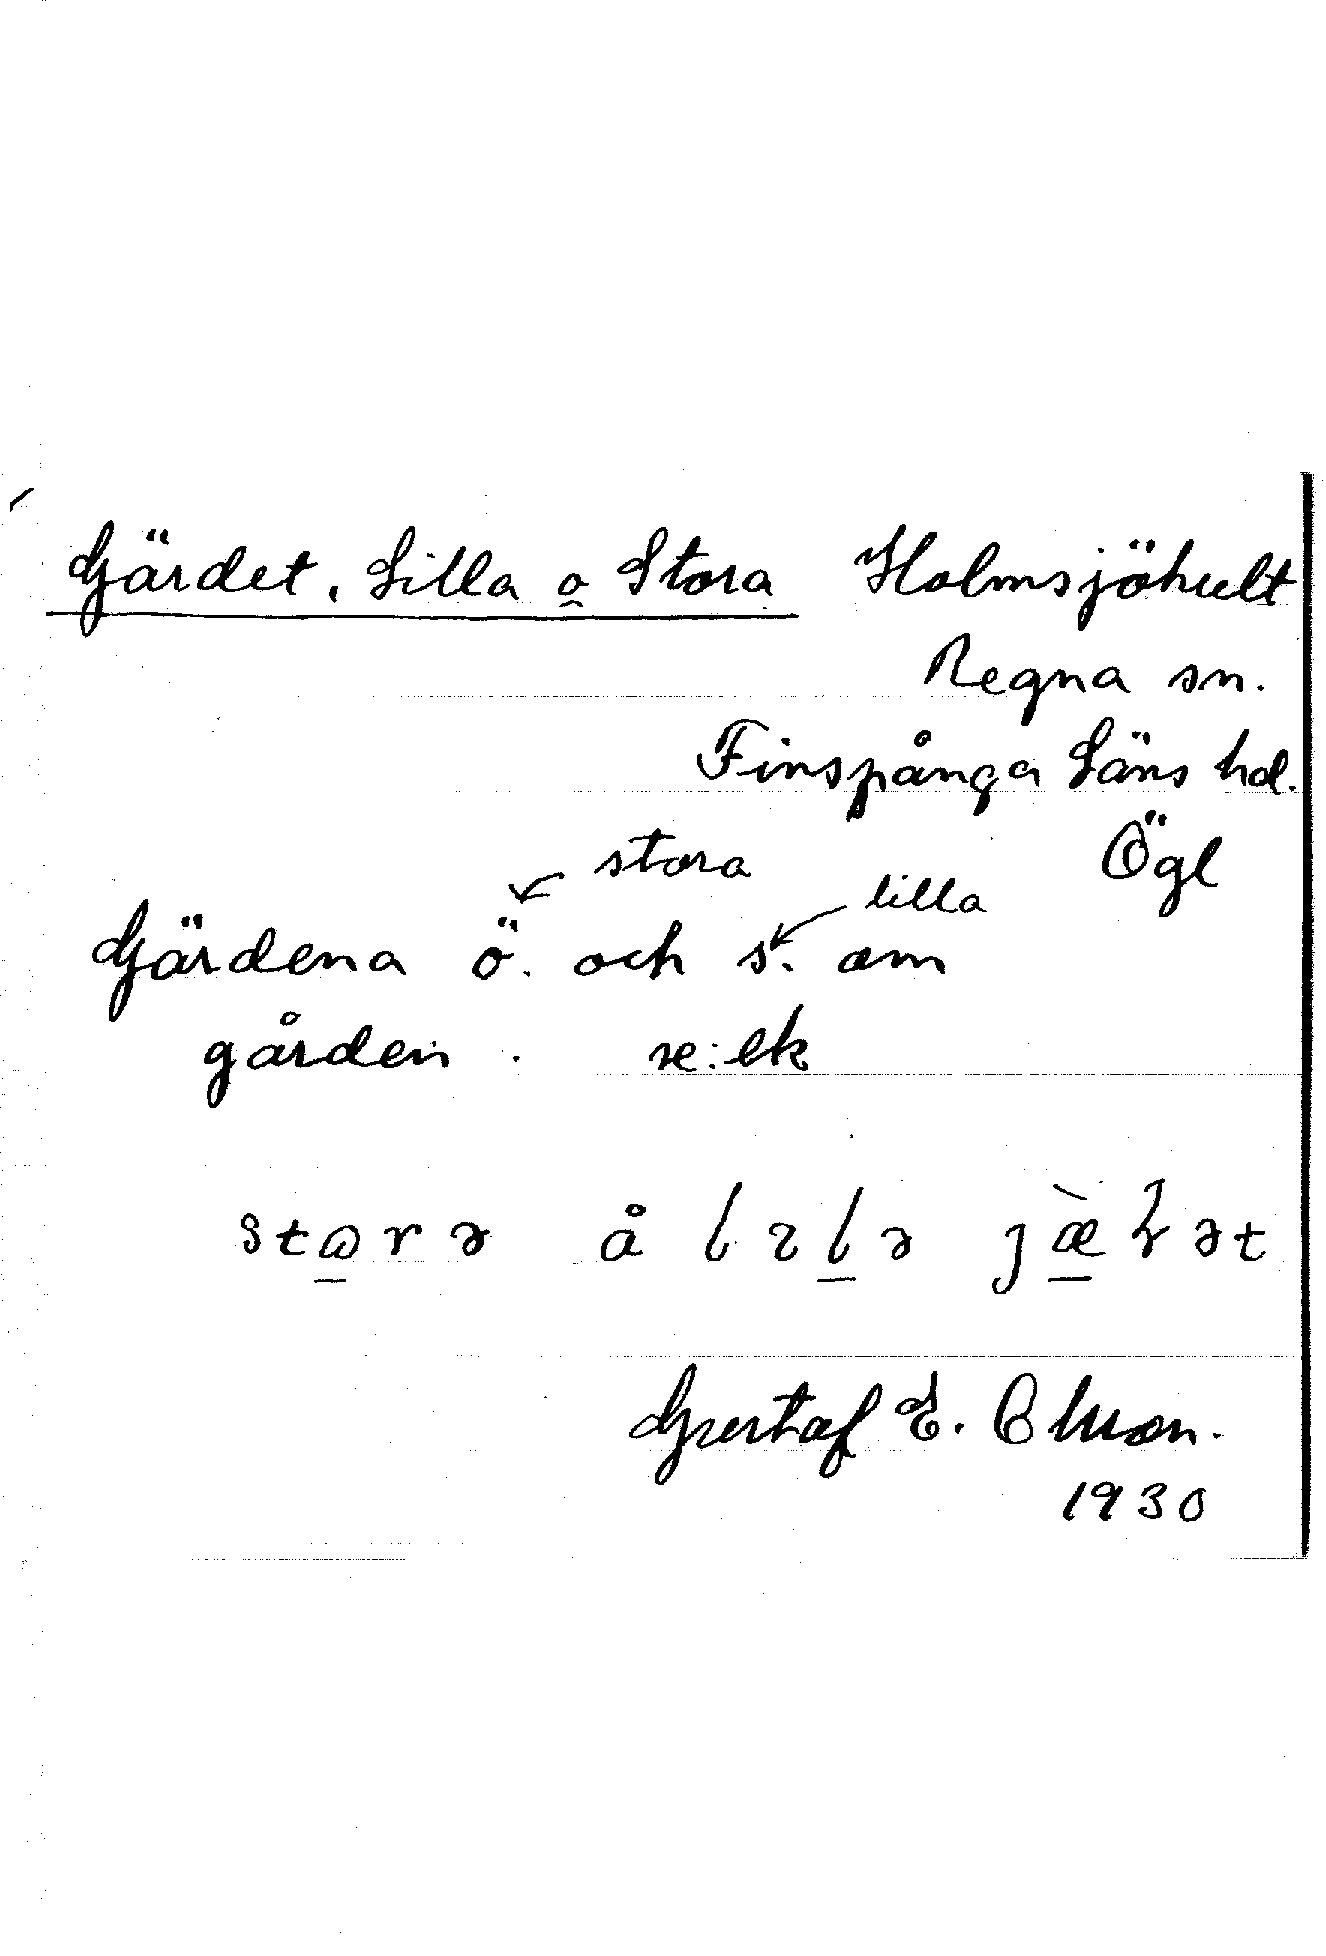 Gärdet, Lilla o Stora Holmsjöhult
Regna sn.
Finspånga Läns hd.
Ögl
stora
lilla
Gärdena ö. och s. om
gården. se: ek
Gustaf E. Olsson.
1930